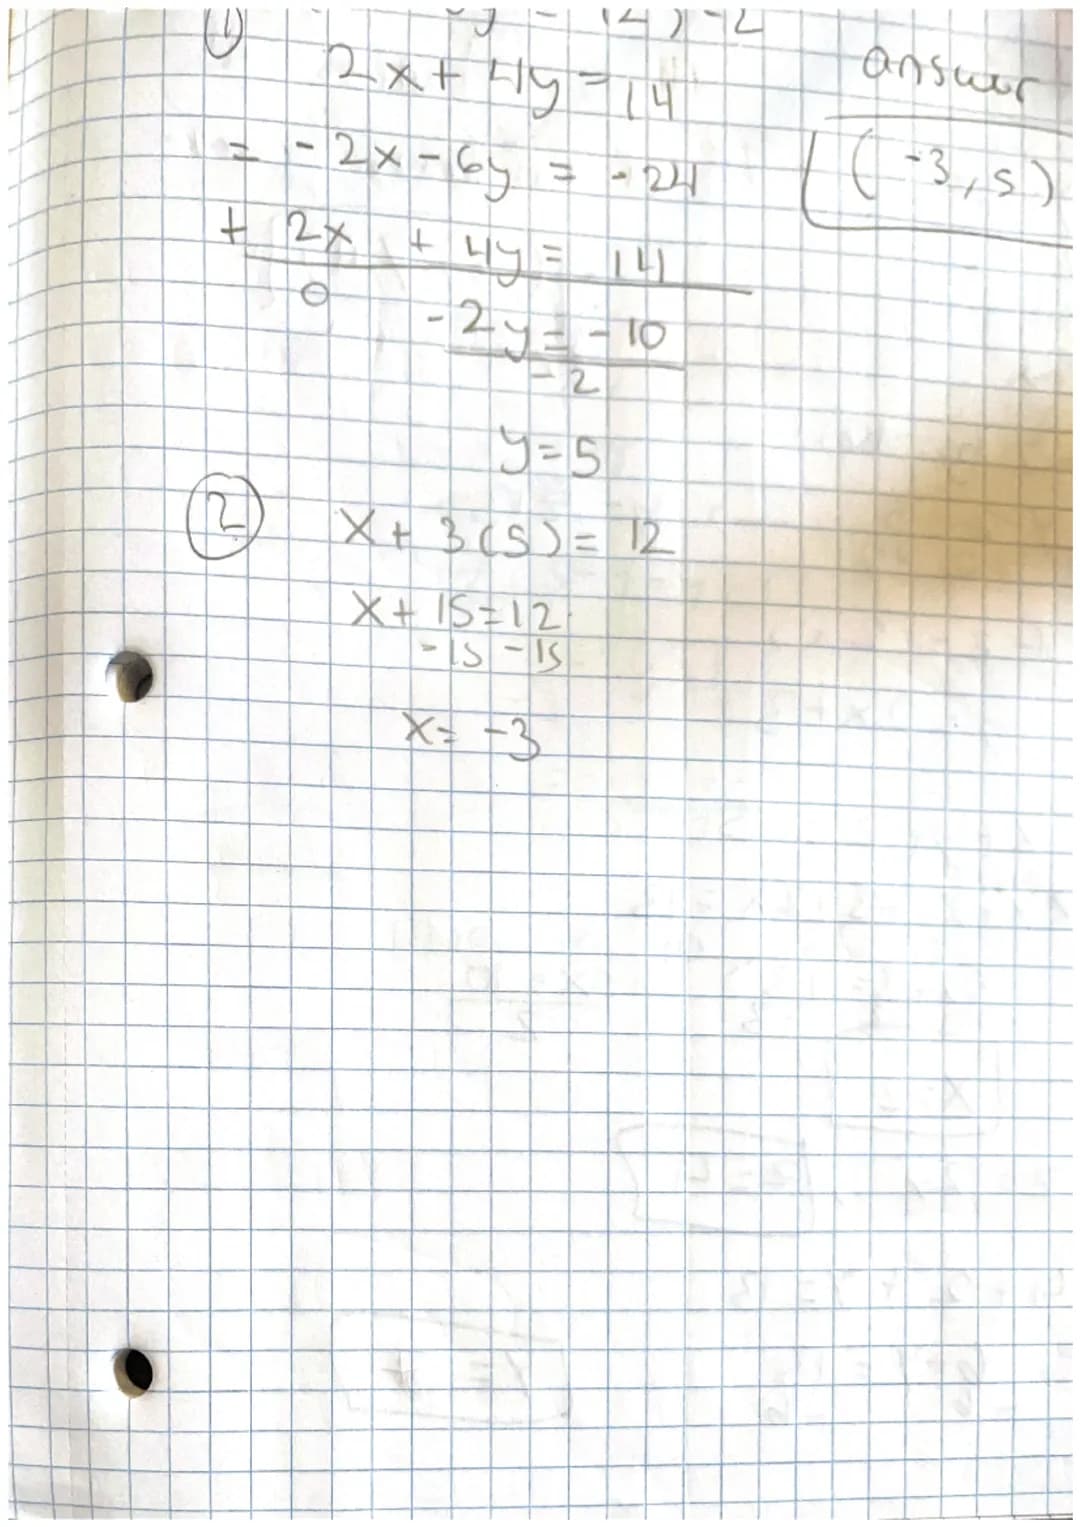 ① y = 12) -2
2x + 4y = 14
answer
= -2x - 6y = -24
(-3, 5)
+ 2x + 4y = 14
0 -2y = -10
-2
y = 5
② x + 3(5) = 12
x + 15 = 12
-15 -15
x = -3